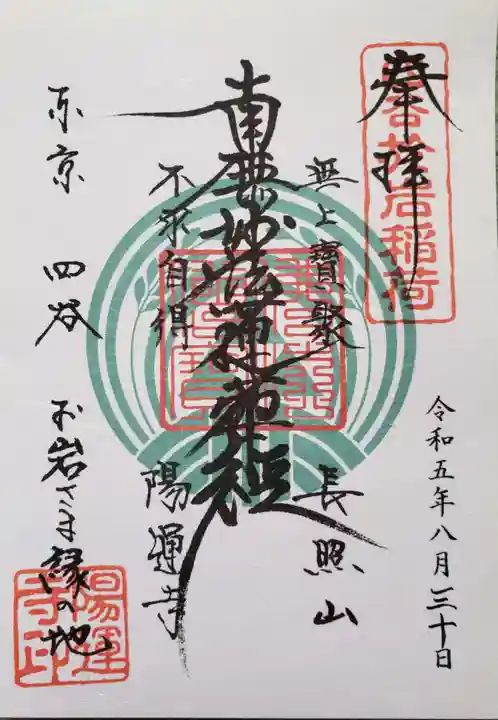 奉拝
四谷於岩稲荷
令和五年八月三十日
無上寶聚 長照山
南無妙法蓮華経
不求自得 陽運寺
東京 四谷 お岩さま縁の地
陽運寺印